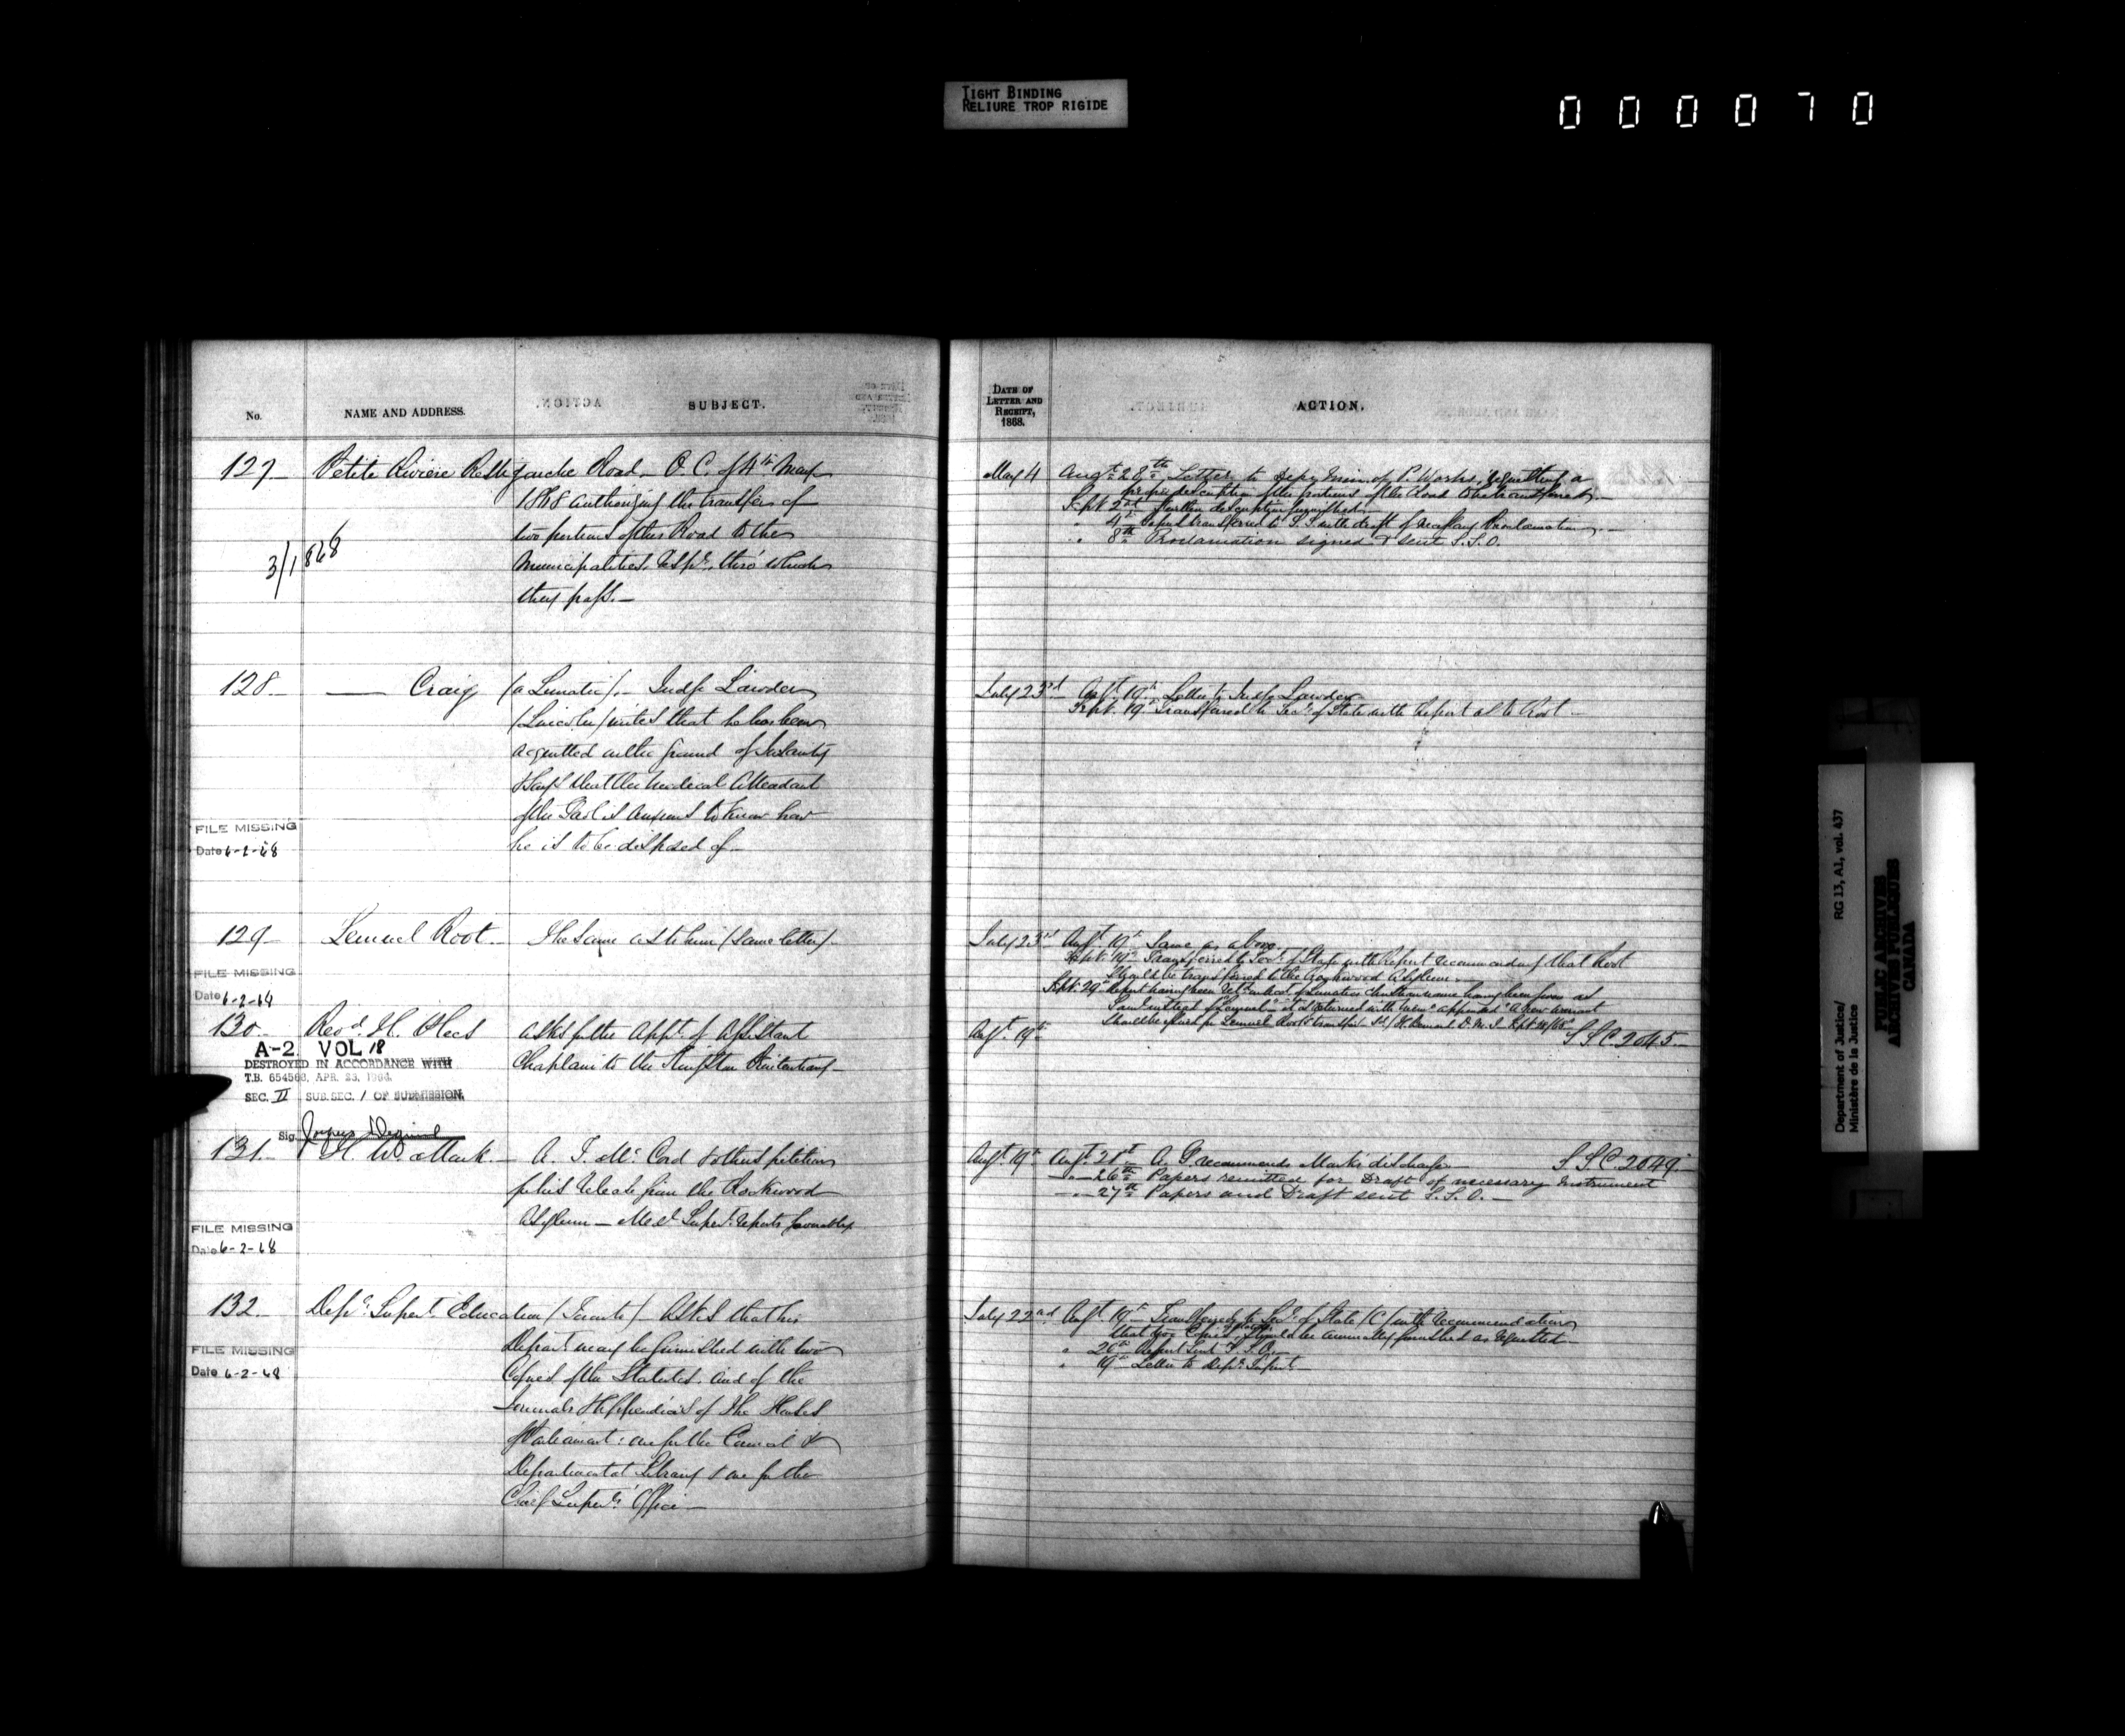 TIGHT BINDING
RELIURE TROP RIGIDE
000070
No.
NAME AND ADDRESS.
SUBJECT.
127 Petite Riviere Restigouche Road – O. C. of 4th May
1868 authorizing the transfer of
two portions of this Road to the
Municipalities, resp., thro' which
they pass.–
3/1868
128 – Craig (a Lunatic).– Judge Lawder
(Lincoln) writes that he has been
acquitted on the ground of Insanity
& says that the medical Attendant
of the Gaol is anxious to know how
he is to be disposed of –
FILE MISSING
Date 6-2-68
129 – Lemuel Root – The same as to him (same letter) –
FILE MISSING
Date 6-2-64
130 – Revd. H. asks for the Appt. of Assistant
Chaplain to the Kingston Penitentiary –
A-2 VOL 18
DESTROYED IN ACCORDANCE WITH
T.B. 654568, APR. 23,
SEC. II SUB. SEC. 1 OF SUBMISSION.
Sig.
131 – H. W. Mark – A. T. McCord & others petition
for his release from the Rockwood
Asylum – Med. Supert. reports favourably
FILE MISSING
Date 6-2-68
132 – Depy. Supert. Education (Toronto) – Asks that his
Depart. may be furnished with two
Copies of the Statutes, and of the
Journals & Appendices of the Houses
of Parliament: one for the Council &
Departmental Library & one for the
Chief Supert's Office –
FILE MISSING
Date 6-2-68
DATE OF
LETTER AND
RECEIPT,
1868.
ACTION.
May 4 Augt. 28th Letter to Depy Min. of P. Works, requesting a
proper description of the portions of the Road to be transferred –
Sept 2nd Further description furnished –
" 4th Report transferred to S.S. with draft of necessary Proclamation –
" 8th Proclamation signed & sent S.S.O.
July 23rd Augt. 19th Letter to Judge Lawder
Sept. 19th Transferred to Secy. of State with Report as to Root –
July 23rd Augt. 19th Same as above.
Sept. 19th Transferred to Secy. of State with Report recommending that Root
should be transferred to the Rockwood Asylum –
Sept. 29th Report having been retd. on acct. of Lunatic's christian name having been given as
Saml. instead of "Lemuel" – it is returned with "appended" "A new warrant
should be issued for Lemuel Root's transfer. Sd/ H. Bernard D. M. J. Sept
Augt. 19th S S C. 2045 –
Augt. 19th Augt. 21st A. G. recommends Mark's discharge – S S C. 2049
– " – 26th Papers remitted for Draft of necessary Instrument
– " – 27th Papers and Draft sent S. S. O. –
July 22nd Augt. 19th Transferred to Secy. of State (C) with recommendation
that two Copies of Statutes should be annually furnished as requested –
" 20th Report sent S. S. O. –
" 19th Letter to Depy. Supert. –
Department of Justice/
Ministère de la Justice
RG 13, A1, vol. 437
PUBLIC ARCHIVES
ARCHIVES PUBLIQUES
CANADA